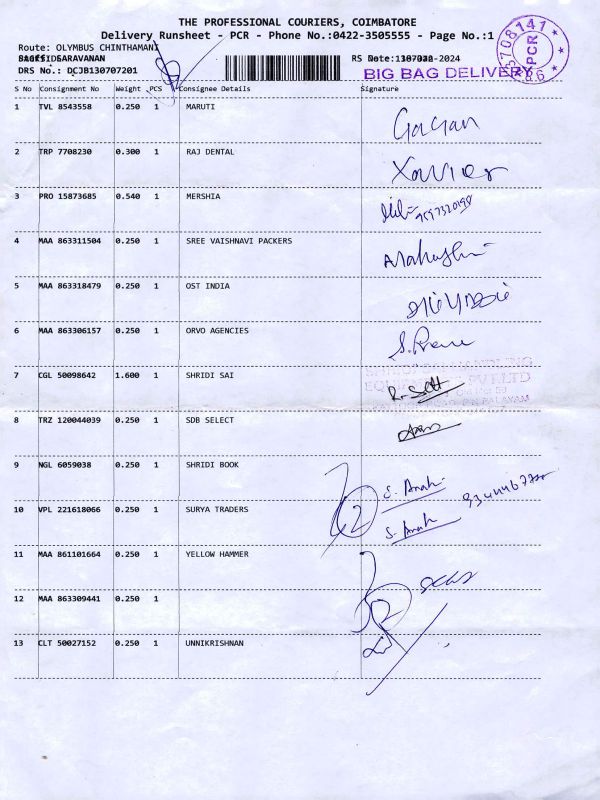 THE PROFESSIONAL COURIERS, COIMBATORE
Delivery Runsheet - PCR - Phone No.:0422-3505555 - Page No.:1
Route: OLYMBUS CHINTHAMANI
SARAVANAN RS Date: -2024
DRS No.: DCJB130707201 BIG BAG DELIVERY
3708141 PCR
S No Consignment No Weight PCS Consignee Details Signature
1 TVL 8543558 0.250 1 MARUTI Gagan
2 TRP 7708230 0.300 1 RAJ DENTAL Xavier
3 PRO 15873685 0.540 1 MERSHIA
4 MAA 863311504 0.250 1 SREE VAISHNAVI PACKERS
5 MAA 863318479 0.250 1 OST INDIA
6 MAA 863306157 0.250 1 ORVO AGENCIES
7 CGL 50098642 1.600 1 SHRIDI SAI
8 TRZ 120044039 0.250 1 SDB SELECT
9 NGL 6059038 0.250 1 SHRIDI BOOK S. Anah
10 VPL 221618066 0.250 1 SURYA TRADERS S. Anah
11 MAA 861101664 0.250 1 YELLOW HAMMER
12 MAA 863309441 0.250 1
13 CLT 50027152 0.250 1 UNNIKRISHNAN